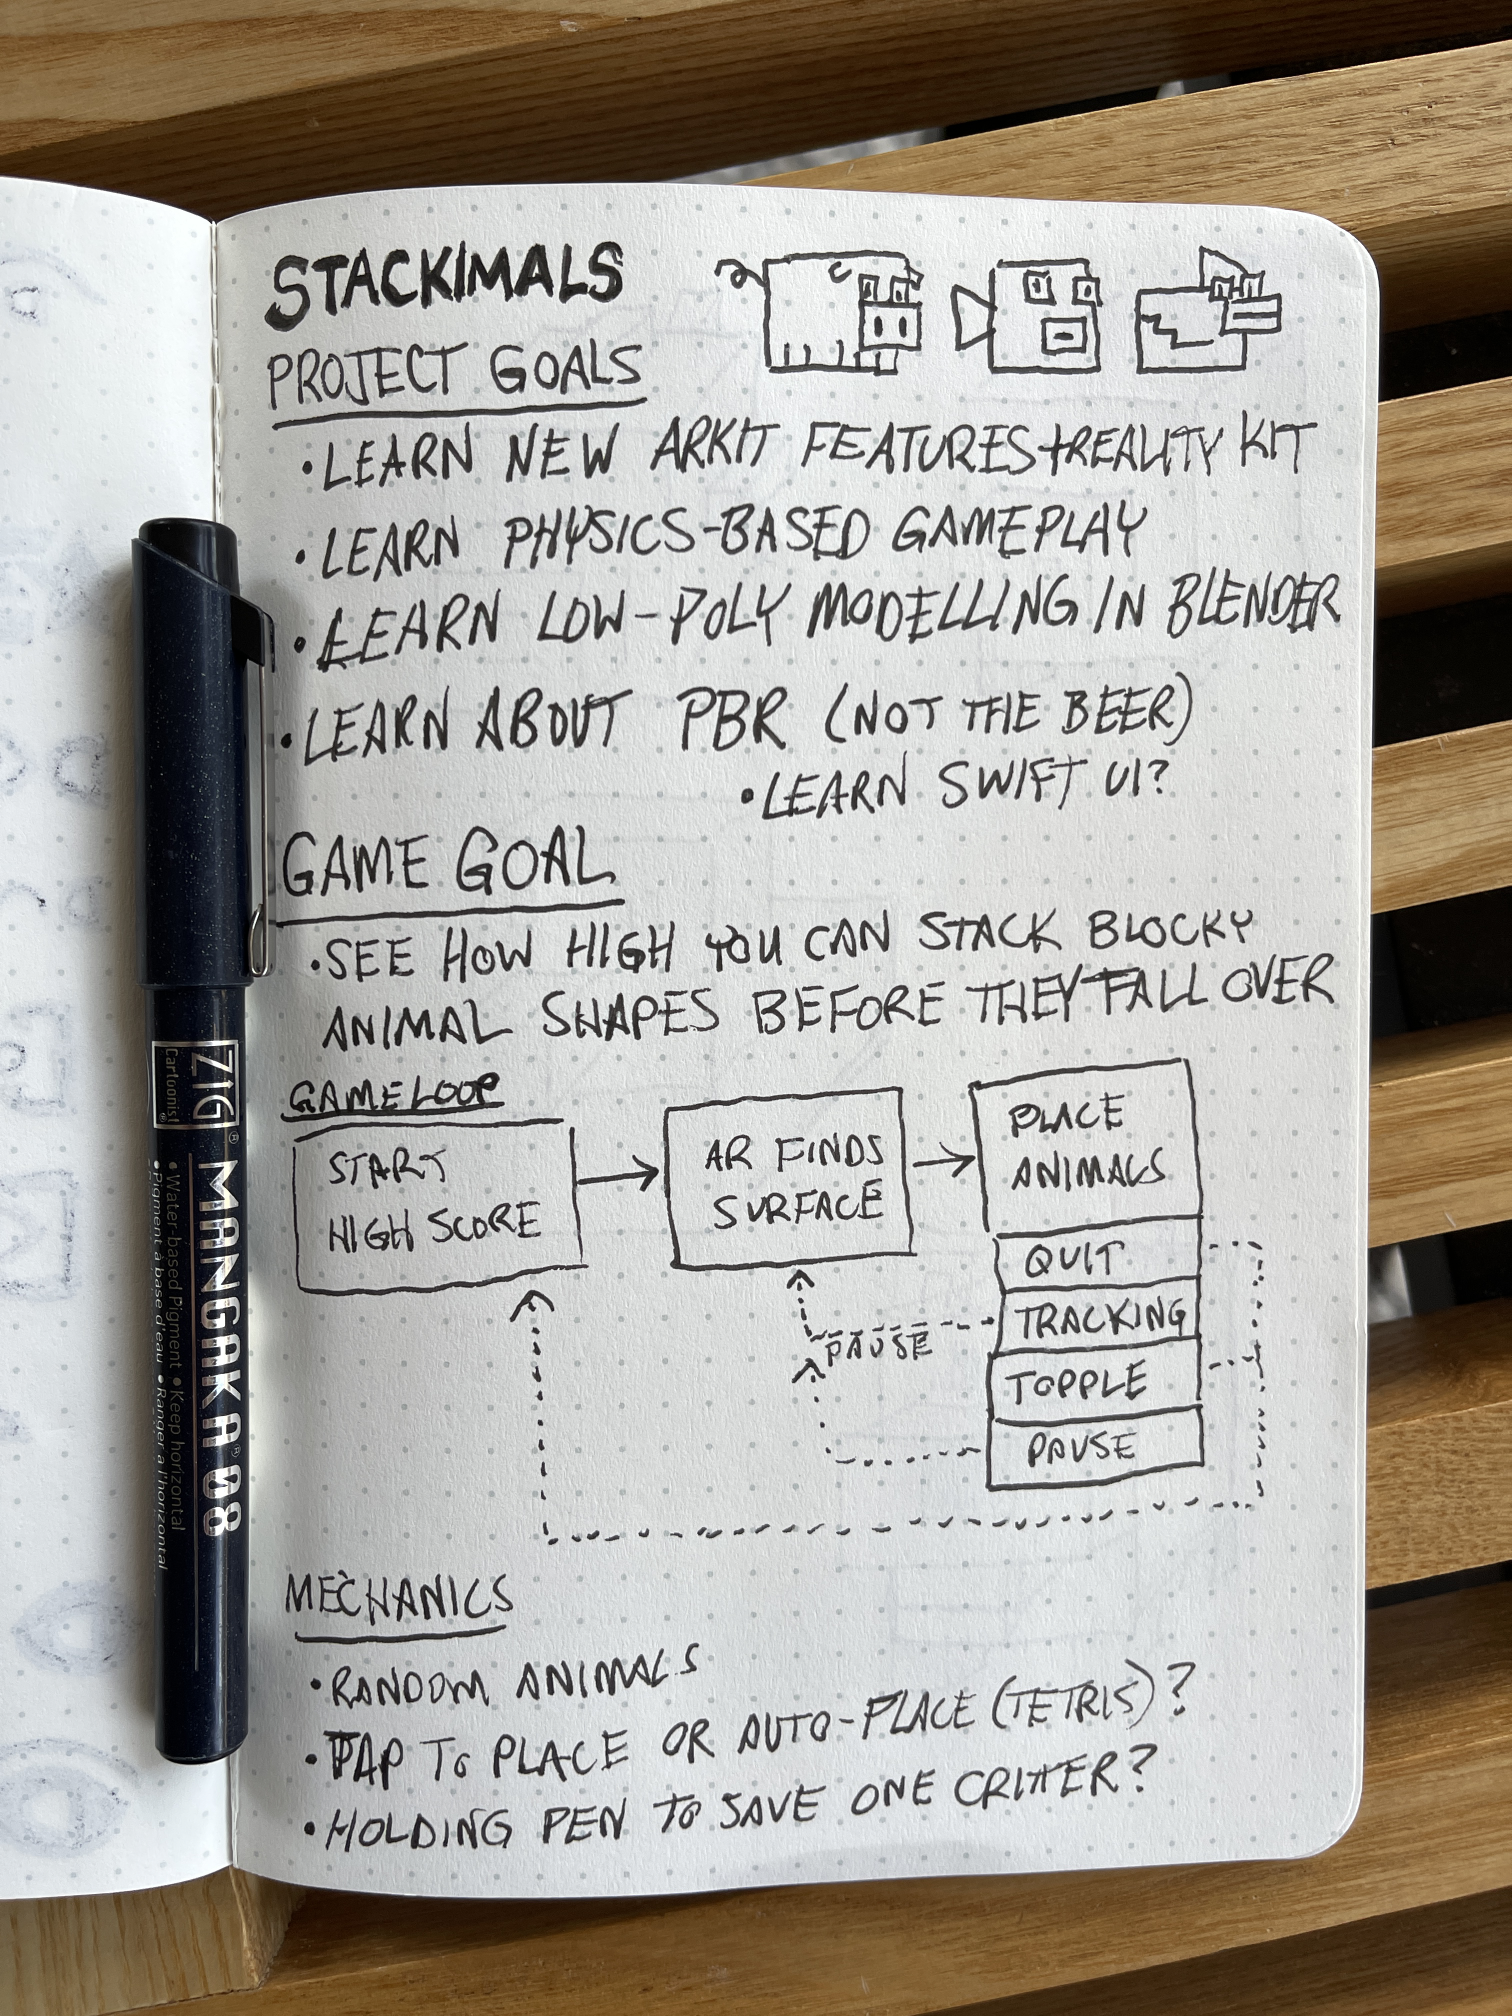 STACKIMALS
PROJECT GOALS
• LEARN NEW ARKIT FEATURES + REALITY KIT
• LEARN PHYSICS-BASED GAMEPLAY
• LEARN LOW-POLY MODELLING IN BLENDER
• LEARN ABOUT PBR (NOT THE BEER)
• LEARN SWIFT UI?
GAME GOAL
• SEE HOW HIGH YOU CAN STACK BLOCKY
ANIMAL SHAPES BEFORE THEY FALL OVER
GAME LOOP
START
HIGH SCORE
AR FINDS
SURFACE
PLACE
ANIMALS
QUIT
TRACKING
TOPPLE
PAUSE
PAUSE
MECHANICS
• RANDOM ANIMALS
• TAP TO PLACE OR AUTO-PLACE (TETRIS)?
• HOLDING PEN TO SAVE ONE CRITTER?
ZIG®
Cartoonist®
MANGAKA® 08
• Water-based Pigment • Keep horizontal
• Pigment à base d'eau • Ranger à l'horizontal